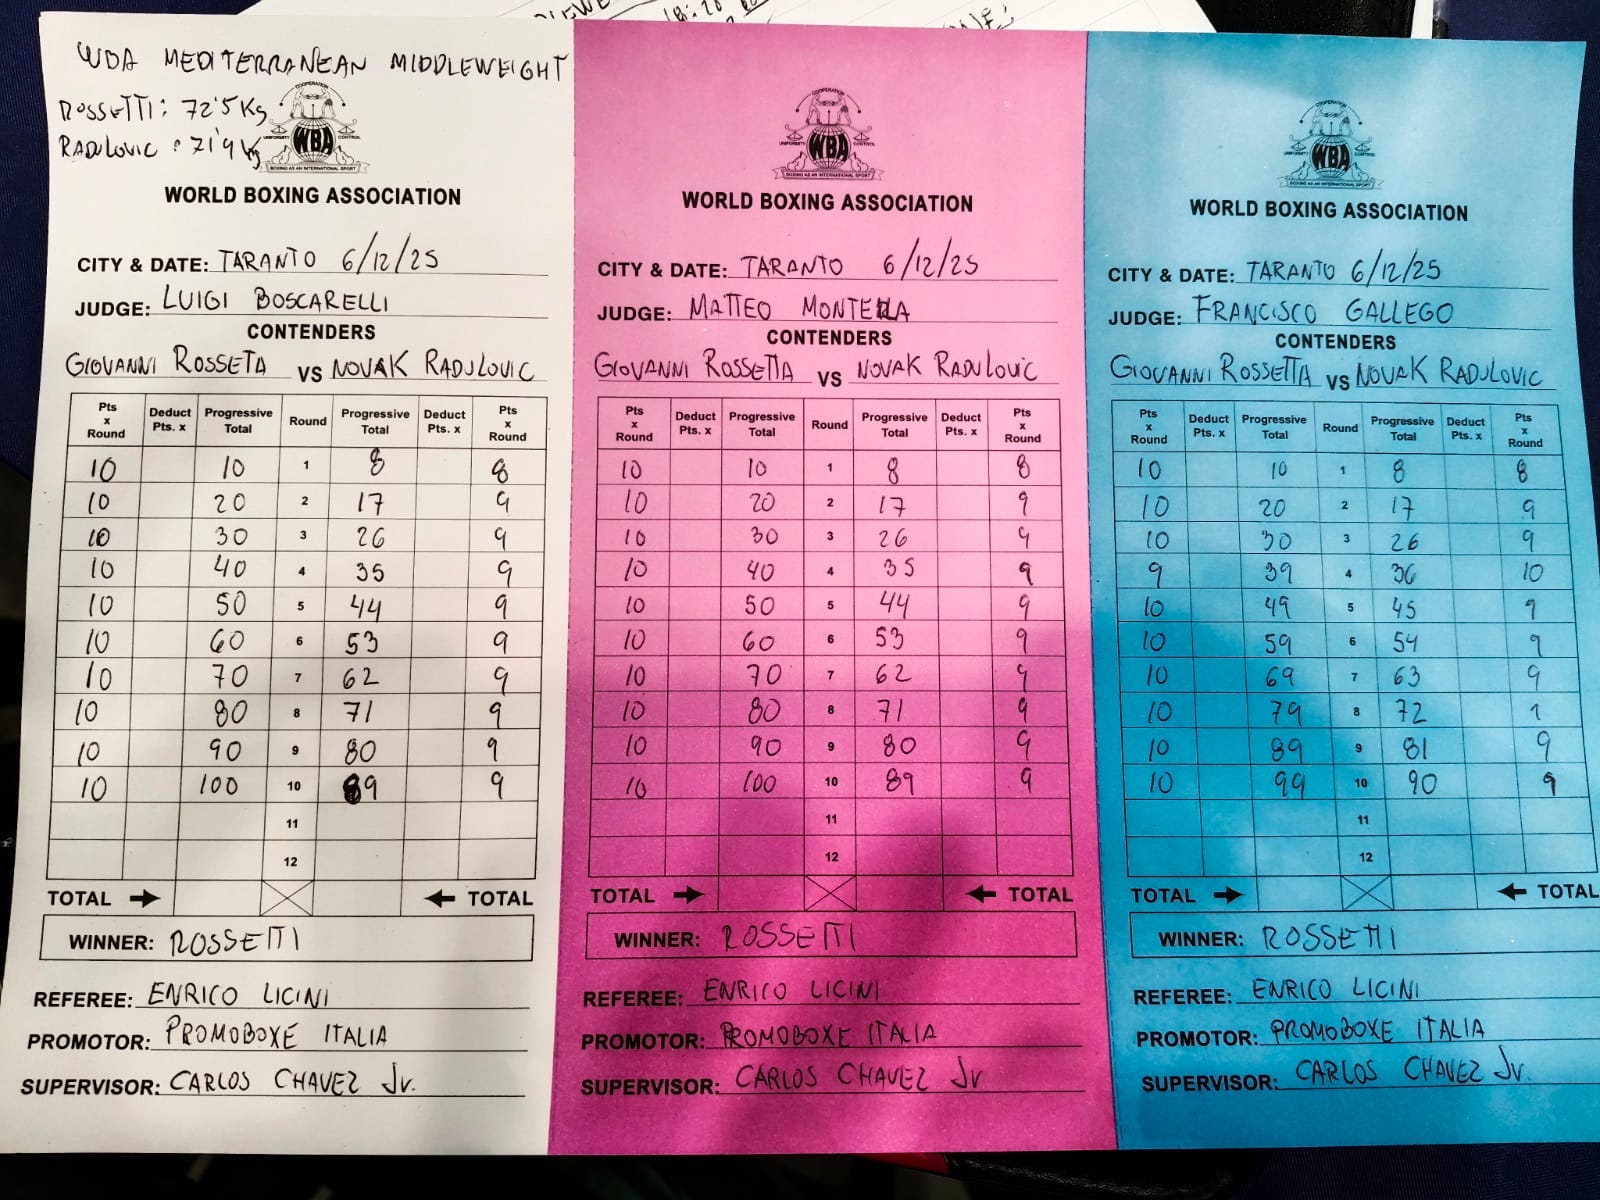 WBA MEDITERRANEAN MIDDLEWEIGHT
ROSSETTI: 72'5 Kg
RADULOVIC: 71'9 kg
COOPERATION
UNIFORMITY WBA CONTROL
BOXING AS AN INTERNATIONAL SPORT
WORLD BOXING ASSOCIATION
CITY & DATE: TARANTO 6/12/25
JUDGE: LUIGI BOSCARELLI
CONTENDERS
GIOVANNI ROSSETA VS NOVAK RADULOVIC
Pts x Round Deduct Pts. x Progressive Total Round Progressive Total Deduct Pts. x Pts x Round
10 10 1 8 8
10 20 2 17 9
10 30 3 26 9
10 40 4 35 9
10 50 5 44 9
10 60 6 53 9
10 70 7 62 9
10 80 8 71 9
10 90 9 80 9
10 100 10 89 9
11
12
TOTAL TOTAL
WINNER: ROSSETTI
REFEREE: ENRICO LICINI
PROMOTOR: PROMOBOXE ITALIA
SUPERVISOR: CARLOS CHAVEZ Jr.
COOPERATION
UNIFORMITY WBA CONTROL
BOXING AS AN INTERNATIONAL SPORT
WORLD BOXING ASSOCIATION
CITY & DATE: TARANTO 6/12/25
JUDGE: MATTEO MONTELLA
CONTENDERS
GIOVANNI ROSSETTA VS NOVAK RADULOVIC
Pts x Round Deduct Pts. x Progressive Total Round Progressive Total Deduct Pts. x Pts x Round
10 10 1 8 8
10 20 2 17 9
10 30 3 26 9
10 40 4 35 9
10 50 5 44 9
10 60 6 53 9
10 70 7 62 9
10 80 8 71 9
10 90 9 80 9
10 100 10 89 9
11
12
TOTAL TOTAL
WINNER: ROSSETTI
REFEREE: ENRICO LICINI
PROMOTOR: PROMOBOXE ITALIA
SUPERVISOR: CARLOS CHAVEZ Jr
COOPERATION
UNIFORMITY WBA CONTROL
BOXING AS AN INTERNATIONAL SPORT
WORLD BOXING ASSOCIATION
CITY & DATE: TARANTO 6/12/25
JUDGE: FRANCISCO GALLEGO
CONTENDERS
GIOVANNI ROSSETTA VS NOVAK RADULOVIC
Pts x Round Deduct Pts. x Progressive Total Round Progressive Total Deduct Pts. x Pts x Round
10 10 1 8 8
10 20 2 17 9
10 30 3 26 9
9 39 4 36 10
10 49 5 45 9
10 59 6 54 9
10 69 7 63 9
10 79 8 72 9
10 89 9 81 9
10 99 10 90 9
11
12
TOTAL TOTAL
WINNER: ROSSETTI
REFEREE: ENRICO LICINI
PROMOTOR: PROMOBOXE ITALIA
SUPERVISOR: CARLOS CHAVEZ Jr.